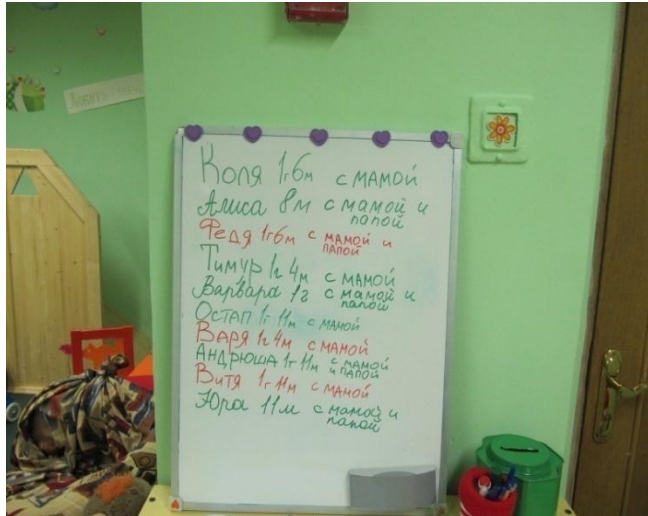 Коля 1г6м с мамой
Алиса 8м с мамой и
папой
Федя 1г6м с мамой и
папой
Тимур 1г 4м с мамой
Варвара 1г с мамой и
папой
Остап 1г 11м с мамой
Варя 1г 4м с мамой
Андрюша 1г 11м с мамой
и папой
Витя 1г 11м с мамой
Юра 11м с мама и
папой